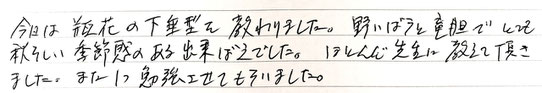 今日は瓶花の下垂型を教わりました。野いばらと竜胆でとても
秋らしい季節感のある出来ばえでした。ほとんど先生に教えて頂き
ました。また1つ勉強させてもらいました。